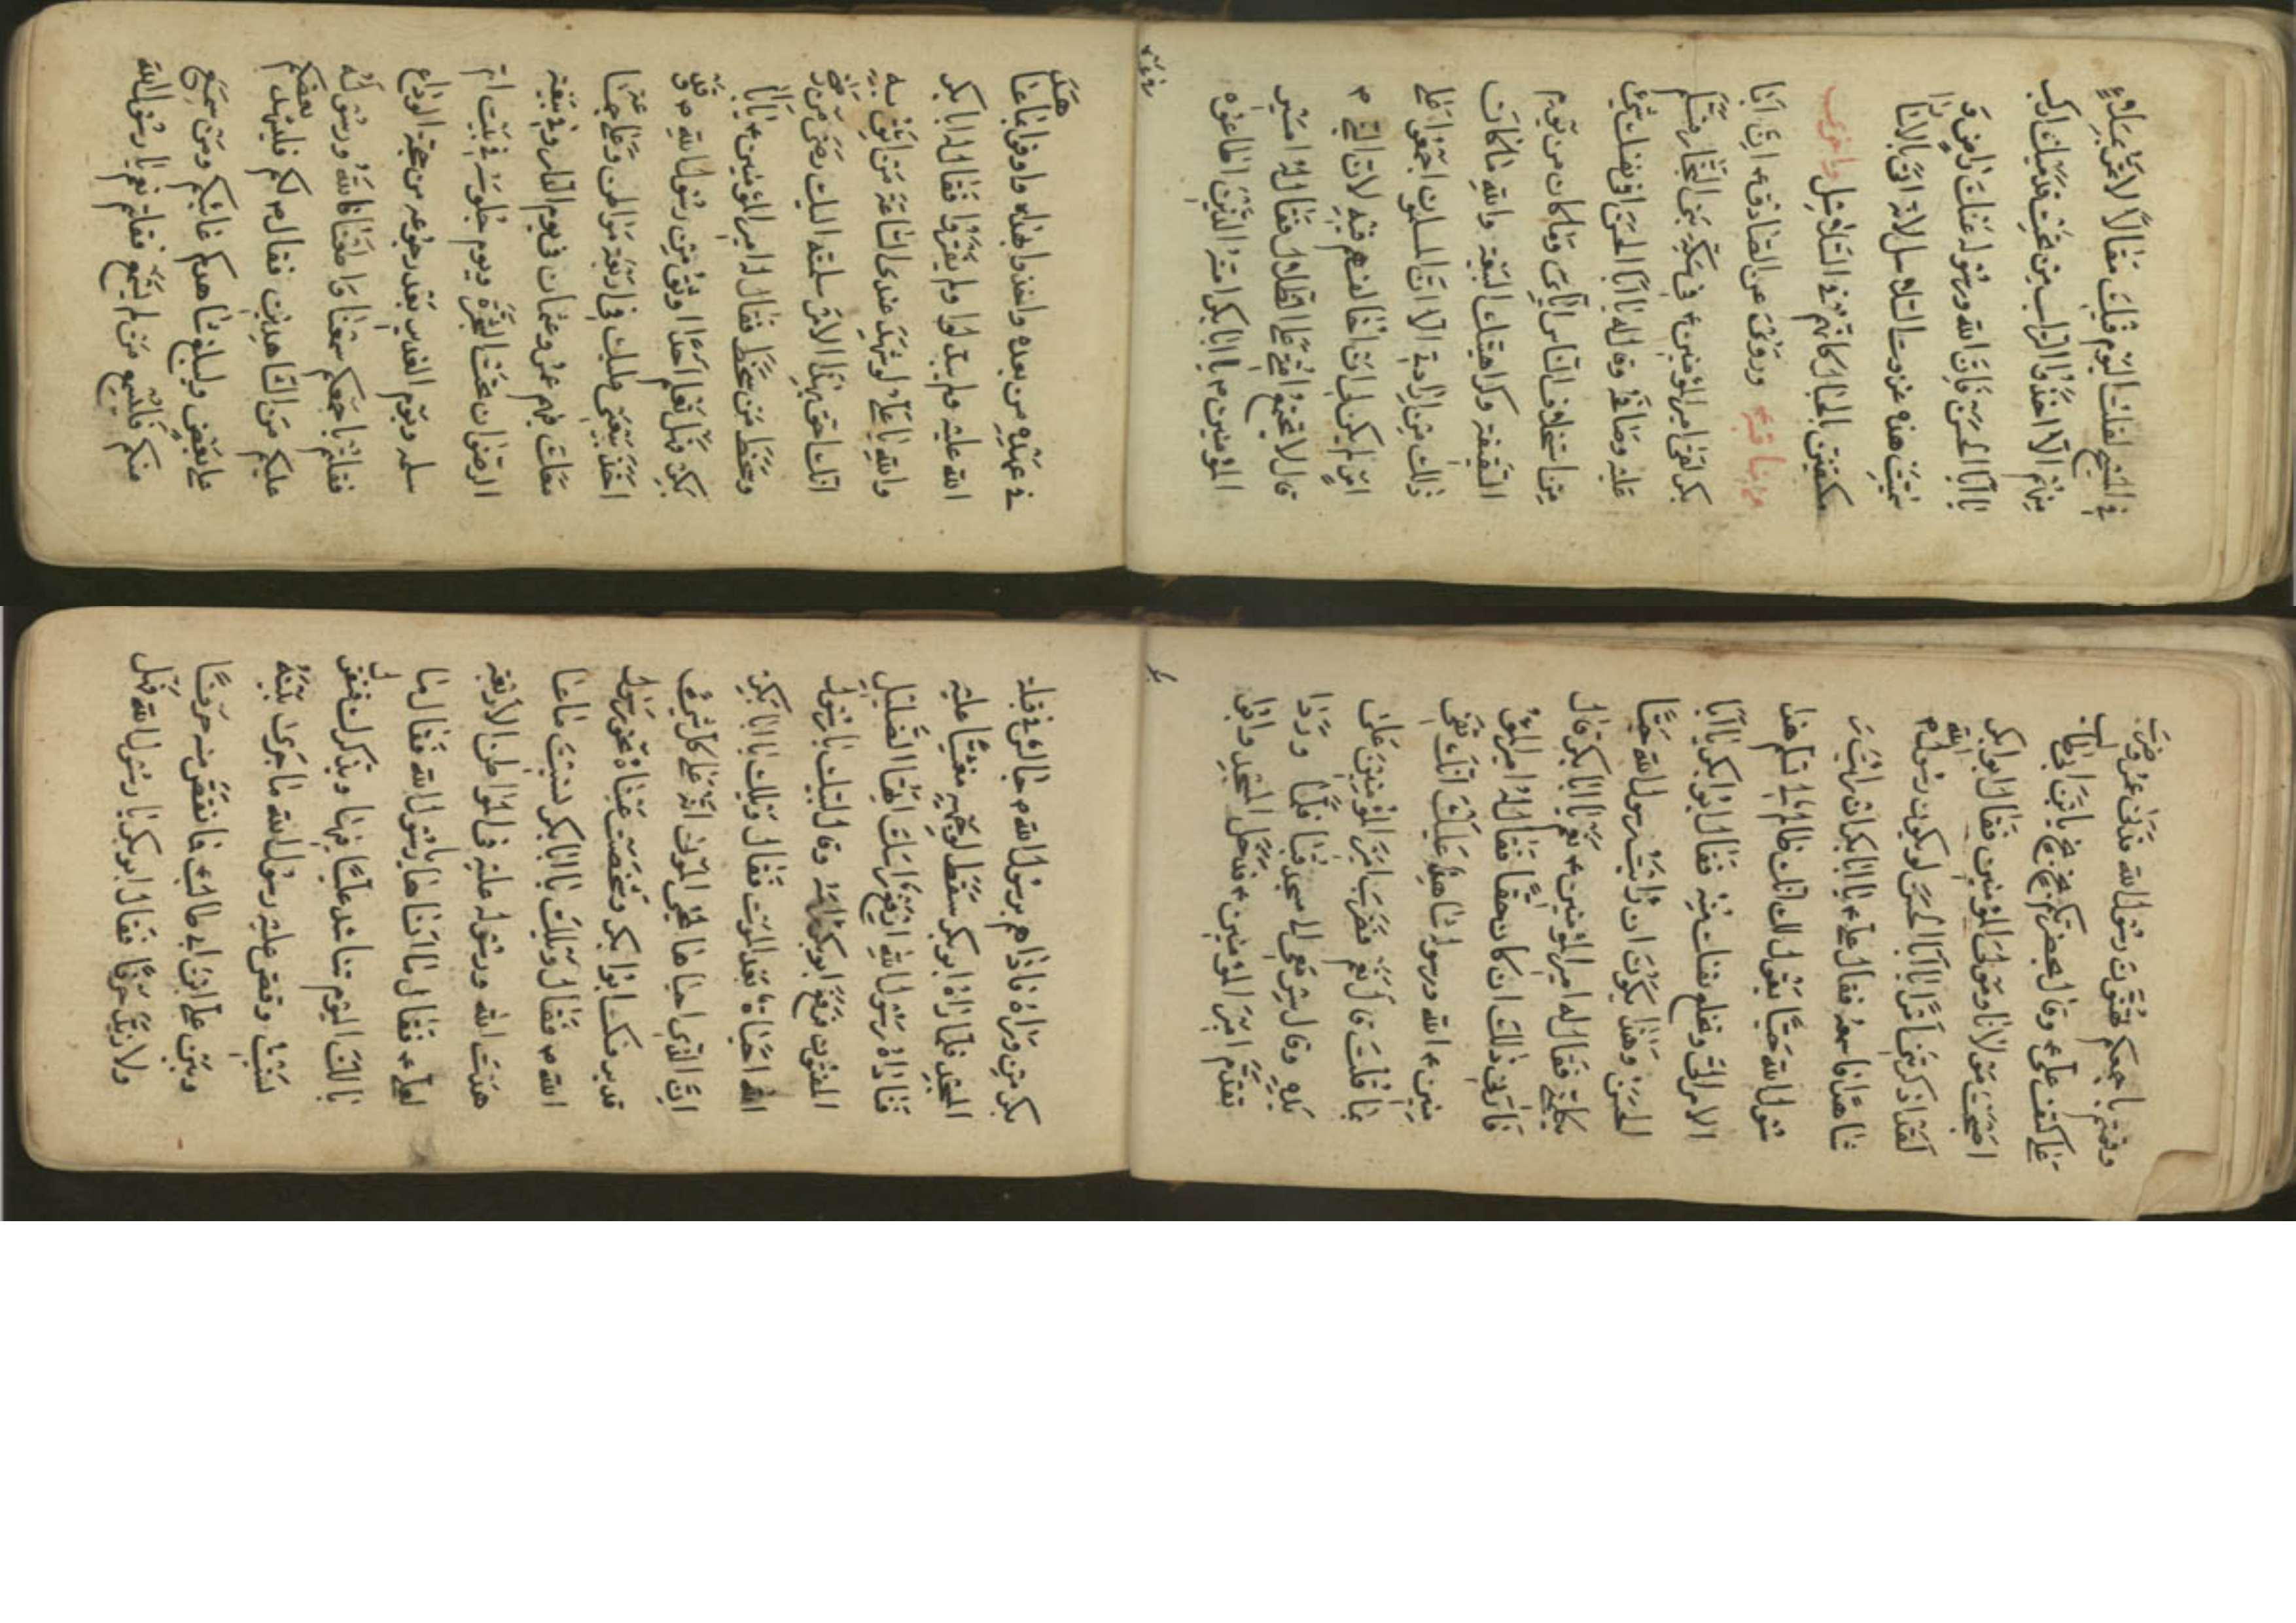 في المسيح لقلت اليوم فيك مقالاً لا تمر بملاءٍ
منهم الا اخذوا التراب من تحت قدميك اركب
يا ابا الحسن فان الله ورسوله عنك راض وَ
سميت هذه غزوت السلاسل لانه اتى بالاسارا
مكتفين بالحبال كانهم في السلاسل واخرى
من مناقبه ورويت عن الصادق ع ان ابا
بكر لقى امير المؤمنين ع في سكة بني النجار فسلم
عليه وصافحه وقال له يا ابا الحسن افي نفسك شئ
من استخلاف الناس اياي وما كان من يوم
السقيفة وكراهيتك البيعة والله ما كان
ذلك من ارادتي الا ان المسلمون اجتمعوا على
امر لم يكن لي ان اخالفهم فيه لان النبي ص
قال لا تجتمع امتي على الضلال فقال له امير
المؤمنين ع يا ابا بكر امته الذين اطاعوه
في عهده من بعده واخذوا بهداه واوفوا بما عاهدوا
الله عليه ولم يبدلوا ولم يغيروا فقال له ابا بكر
والله يا علي لو شهد عندي الساعة من اثق به
انك احق بهذا الامر سلمته اليك رضى من رضى
وسخط من سخط فقال له امير المؤمنين ع يا ابا
بكر فهل تعلم احدا اوثق من رسول الله ص وقد
اخذ بيعتي عليك في اربعة مواطن وعلى جماعة
معك فيهم عمر وعثمان في يوم الدار وفي بيعة
الرضوان تحت الشجرة ويوم جلوسه في بيت ام
سلمه ويوم الغدير بعد رجوعه من حجة الوداع
فقلتم باجمعكم سمعنا واطعنا الله ورسوله
عليكم من الشاهدين فقال ص لكم فليشهد بعضكم
على بعض وليبلغ شاهدكم غائبكم ومن سمع
منكم فليسمع من لم يسمع فقلتم نعم يا رسول الله
وقمتم باجمعكم تهنون رسول الله فدنى عمر وضرب
على كتف علي ع وقال بحضرتكم بخ بخ يا بن ابي طالب
اصبحت مولانا ومولى المؤمنين فقال ابو بكر
لقد اذكرتني امرا يا ابا الحسن لو يكون رسول الله ص
شاهدا فاسمعه فقال علي ع يا ابا بكر ان رايت ر
سول الله حيا يقول لك انك ظالم لي تسلم هذا
الامر الي وتخلع نفسك منه فقال ابو بكر يا ابا
الحسن وهذا يكون ان رسول الله حيا
يكلمني فقال له امير المؤمنين ع نعم يا ابا بكر قال
فارني ذلك ان كان حقا فقال له امير المؤ
منين ع الله ورسوله شاهدا عليك انك تفي
بما قلت قال نعم فضرب امير المؤمنين على
يده وقال سر معي الى مسجد قبا فلما وردا
تقدم امير المؤمنين ع فدخل المسجد وابا
بكر من وراه فاذا هم برسول الله ص جالس في قبلة
المسجد فلما راه ابو بكر سقط لوجهه مغشيا عليه
فناداه رسول الله ارفع راسك ايها الضليل
المفتون فرفع ابو بكر راسه وقال لبيك يا رسول
الله احياة بعد الموت فقال ويلك يا ابا بكر
ان الذي احياها لمحي الموتى انه على كل شئ
قدير فسكت ابو بكر وشخصت عيناه نحو رسول
الله ص فقال ويلك يا ابا بكر نسيت ما عا
هدت الله ورسوله عليه في المواطن الاربعة
لعلي ع فقال ما انساها يا رسول الله فقال ما
بالك اليوم تناشد عليا فيها ويذكرك فتقول
نسيت وقص عليه رسول الله ما جرى بينه
وبين علي ابن ابي طالب فما نقص منه حرفا
ولا زاد حرفا فقال ابو بكر يا رسول الله فهل